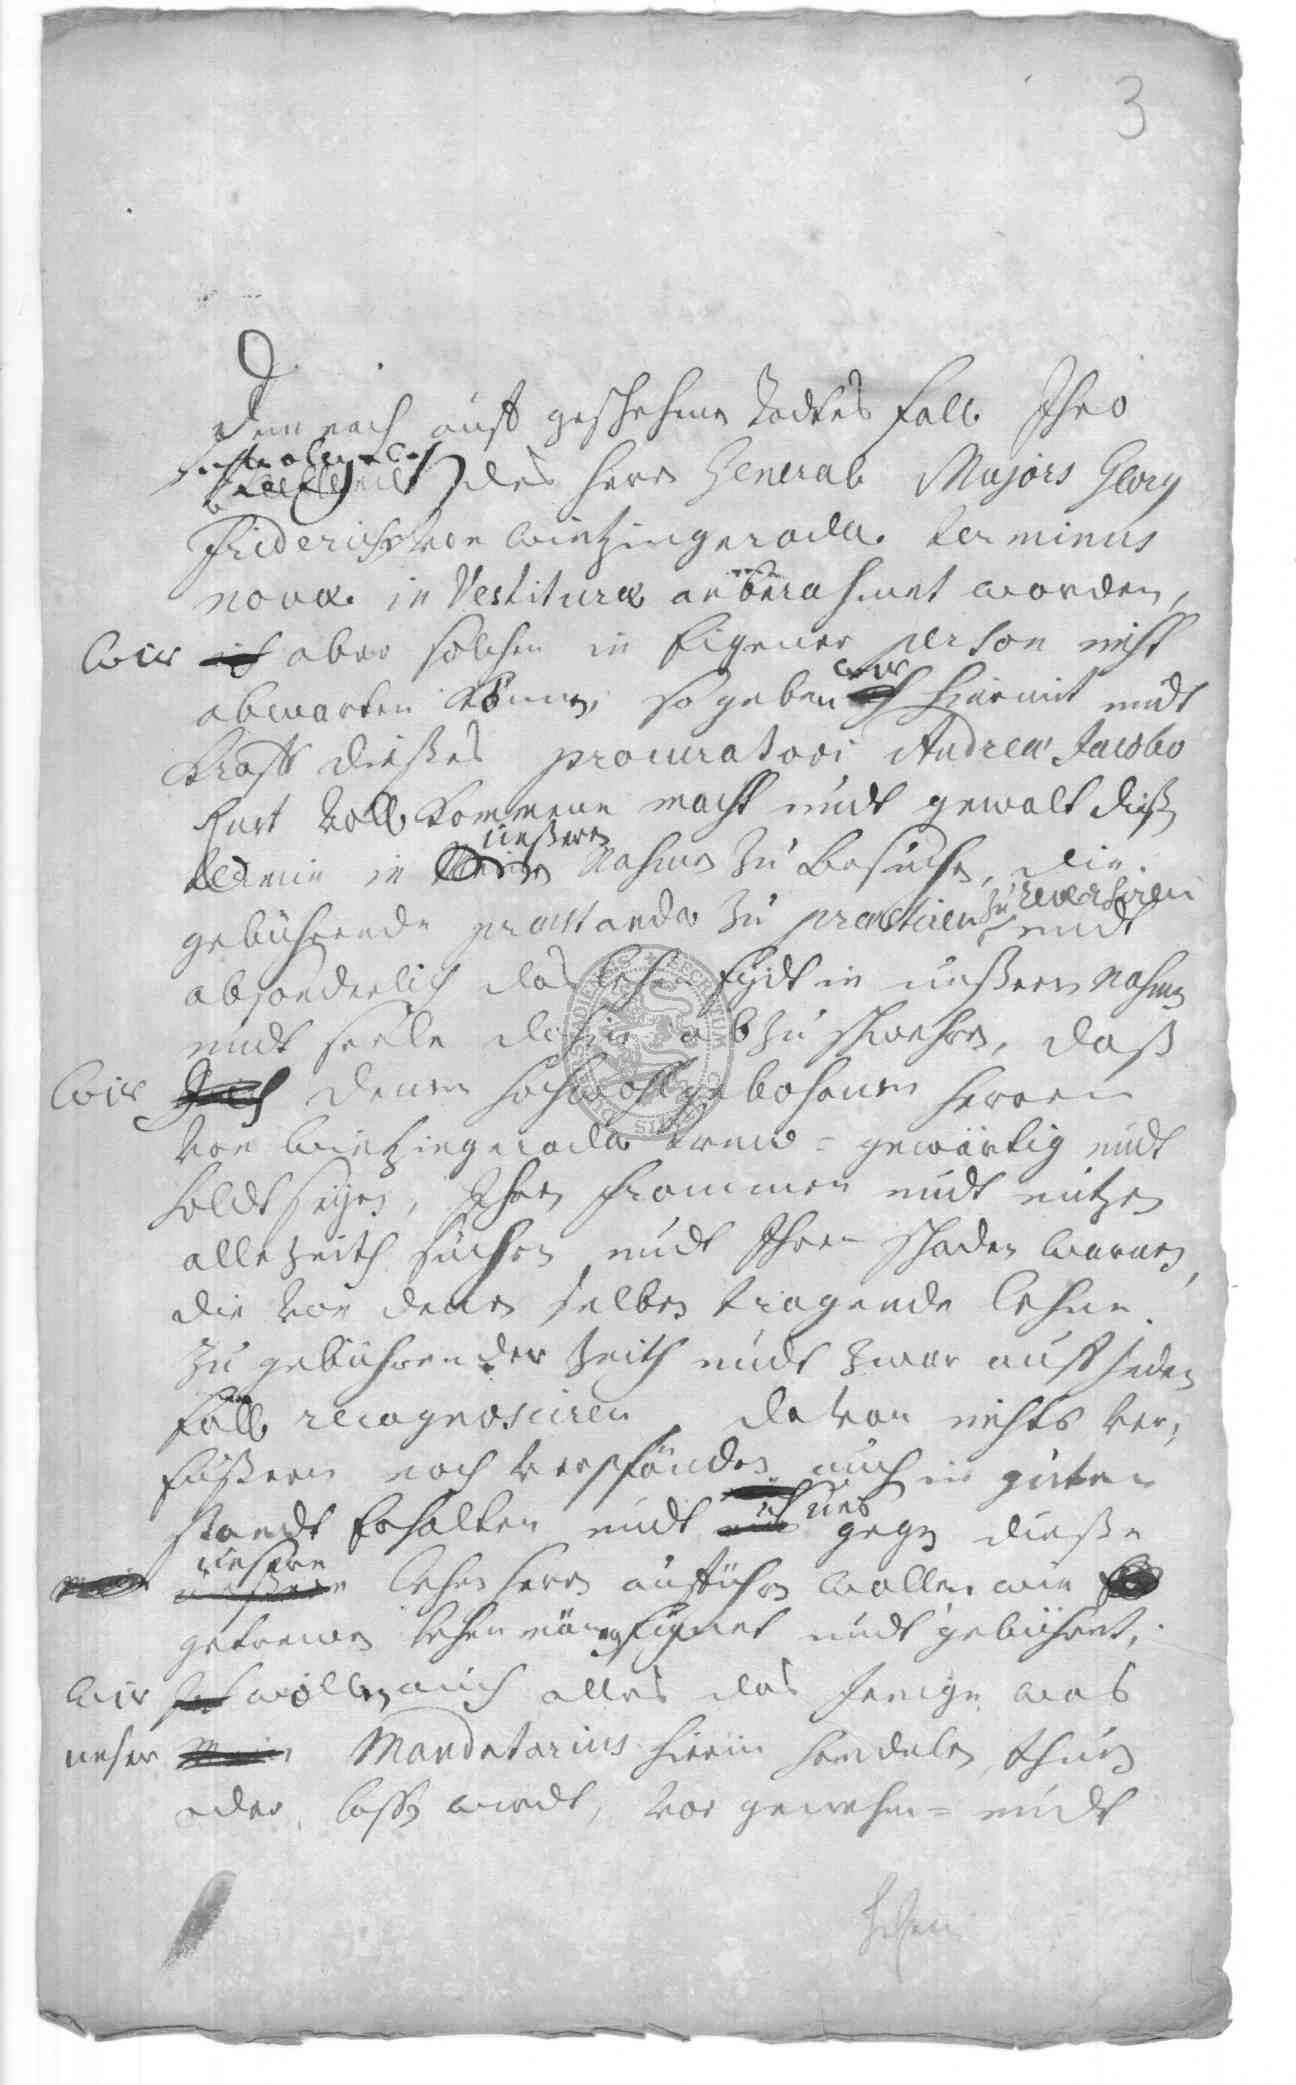 3
Dem nach auff geschehenen Todtes Fall Ihro
des Herrn General Majors Georg
Friderich von Wintzingeroda terminus
novæ in Vestituræ anberahmet worden,
Wir ich aber solchen in Eigener person nicht
abwarten können, so geben wir hiermit undt
Krafft dießes procuratori Andreæ Jacobo
Kurt Voll Kommene macht undt gewalt dießen
termin in unßeren Nahmen zu besuchen, die
gebührende præstanda zu præstiren zu reversiren undt
absonderlich das Lehen Eydt in unßeren Nahmen
undt seele dahin abzuschwehren, daß
Wir Ich denen Hochwohlgebohrnen Herren
von Wintzingeroda trew = gewärtig undt
holdt seyen, Ihren frommen undt nutzen
alle Zeith suchen, undt Ihren schaden warnen,
die von denen selben tragende Lehne
zu gebührender Zeith undt zwar auff jeden
fall recognosciren, davon nichts ver,
eußeren noch verpfänden auch in guten
standt Erhalten undt uns gegen dieße
unsere Lehen Herrn aufführen wollen wie
getrewen Lehen männer Eignet undt gebühret,
Wir wollen auch alles das Jenige was
unser Mein Mandatarius hierin handelen, thun
oder lassen wirdt, vor genehm = undt